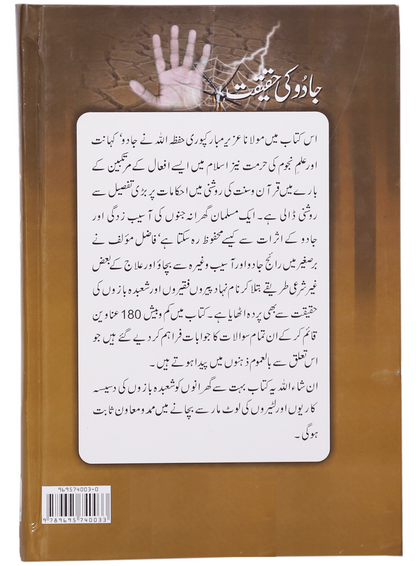 جادُو کی حقیقت
اس کتاب میں مولانا عزیز مبارکپوری حفظہ اللہ نے جادو‘ کہانت
اور علمِ نجوم کی حرمت نیز اسلام میں ایسے افعال کے مرتکبین کے
بارے میں قرآن وسنت کی روشنی میں احکامات پر بڑی تفصیل سے
روشنی ڈالی ہے۔ ایک مسلمان گھرانہ جنوں کی آسیب زدگی اور
جادو کے اثرات سے کیسے محفوظ رہ سکتا ہے‘ فاضل مؤلف نے
برصغیر میں رائج جادو اور آسیب وغیرہ سے بچاؤ اور علاج کے بعض
غیر شرعی طریقے بتلا کر نام نہاد پیروں فقیروں اور شعبدہ بازوں کی
حقیقت سے بھی پردہ اٹھایا ہے۔ کتاب میں کم وبیش 180 عناوین
قائم کرکے ان تمام سوالات کا جوابات فراہم کر دیے گئے ہیں جو
اس تعلق سے بالعموم ذہنوں میں پیدا ہوتے ہیں۔
ان شاء اللہ یہ کتاب بہت سے گھرانوں کو شعبدہ بازوں کی دسیسہ
کاریوں اور لٹیروں کی لوٹ مار سے بچانے میں ممد و معاون ثابت
ہوگی۔
969574003-0
9 789695 740033